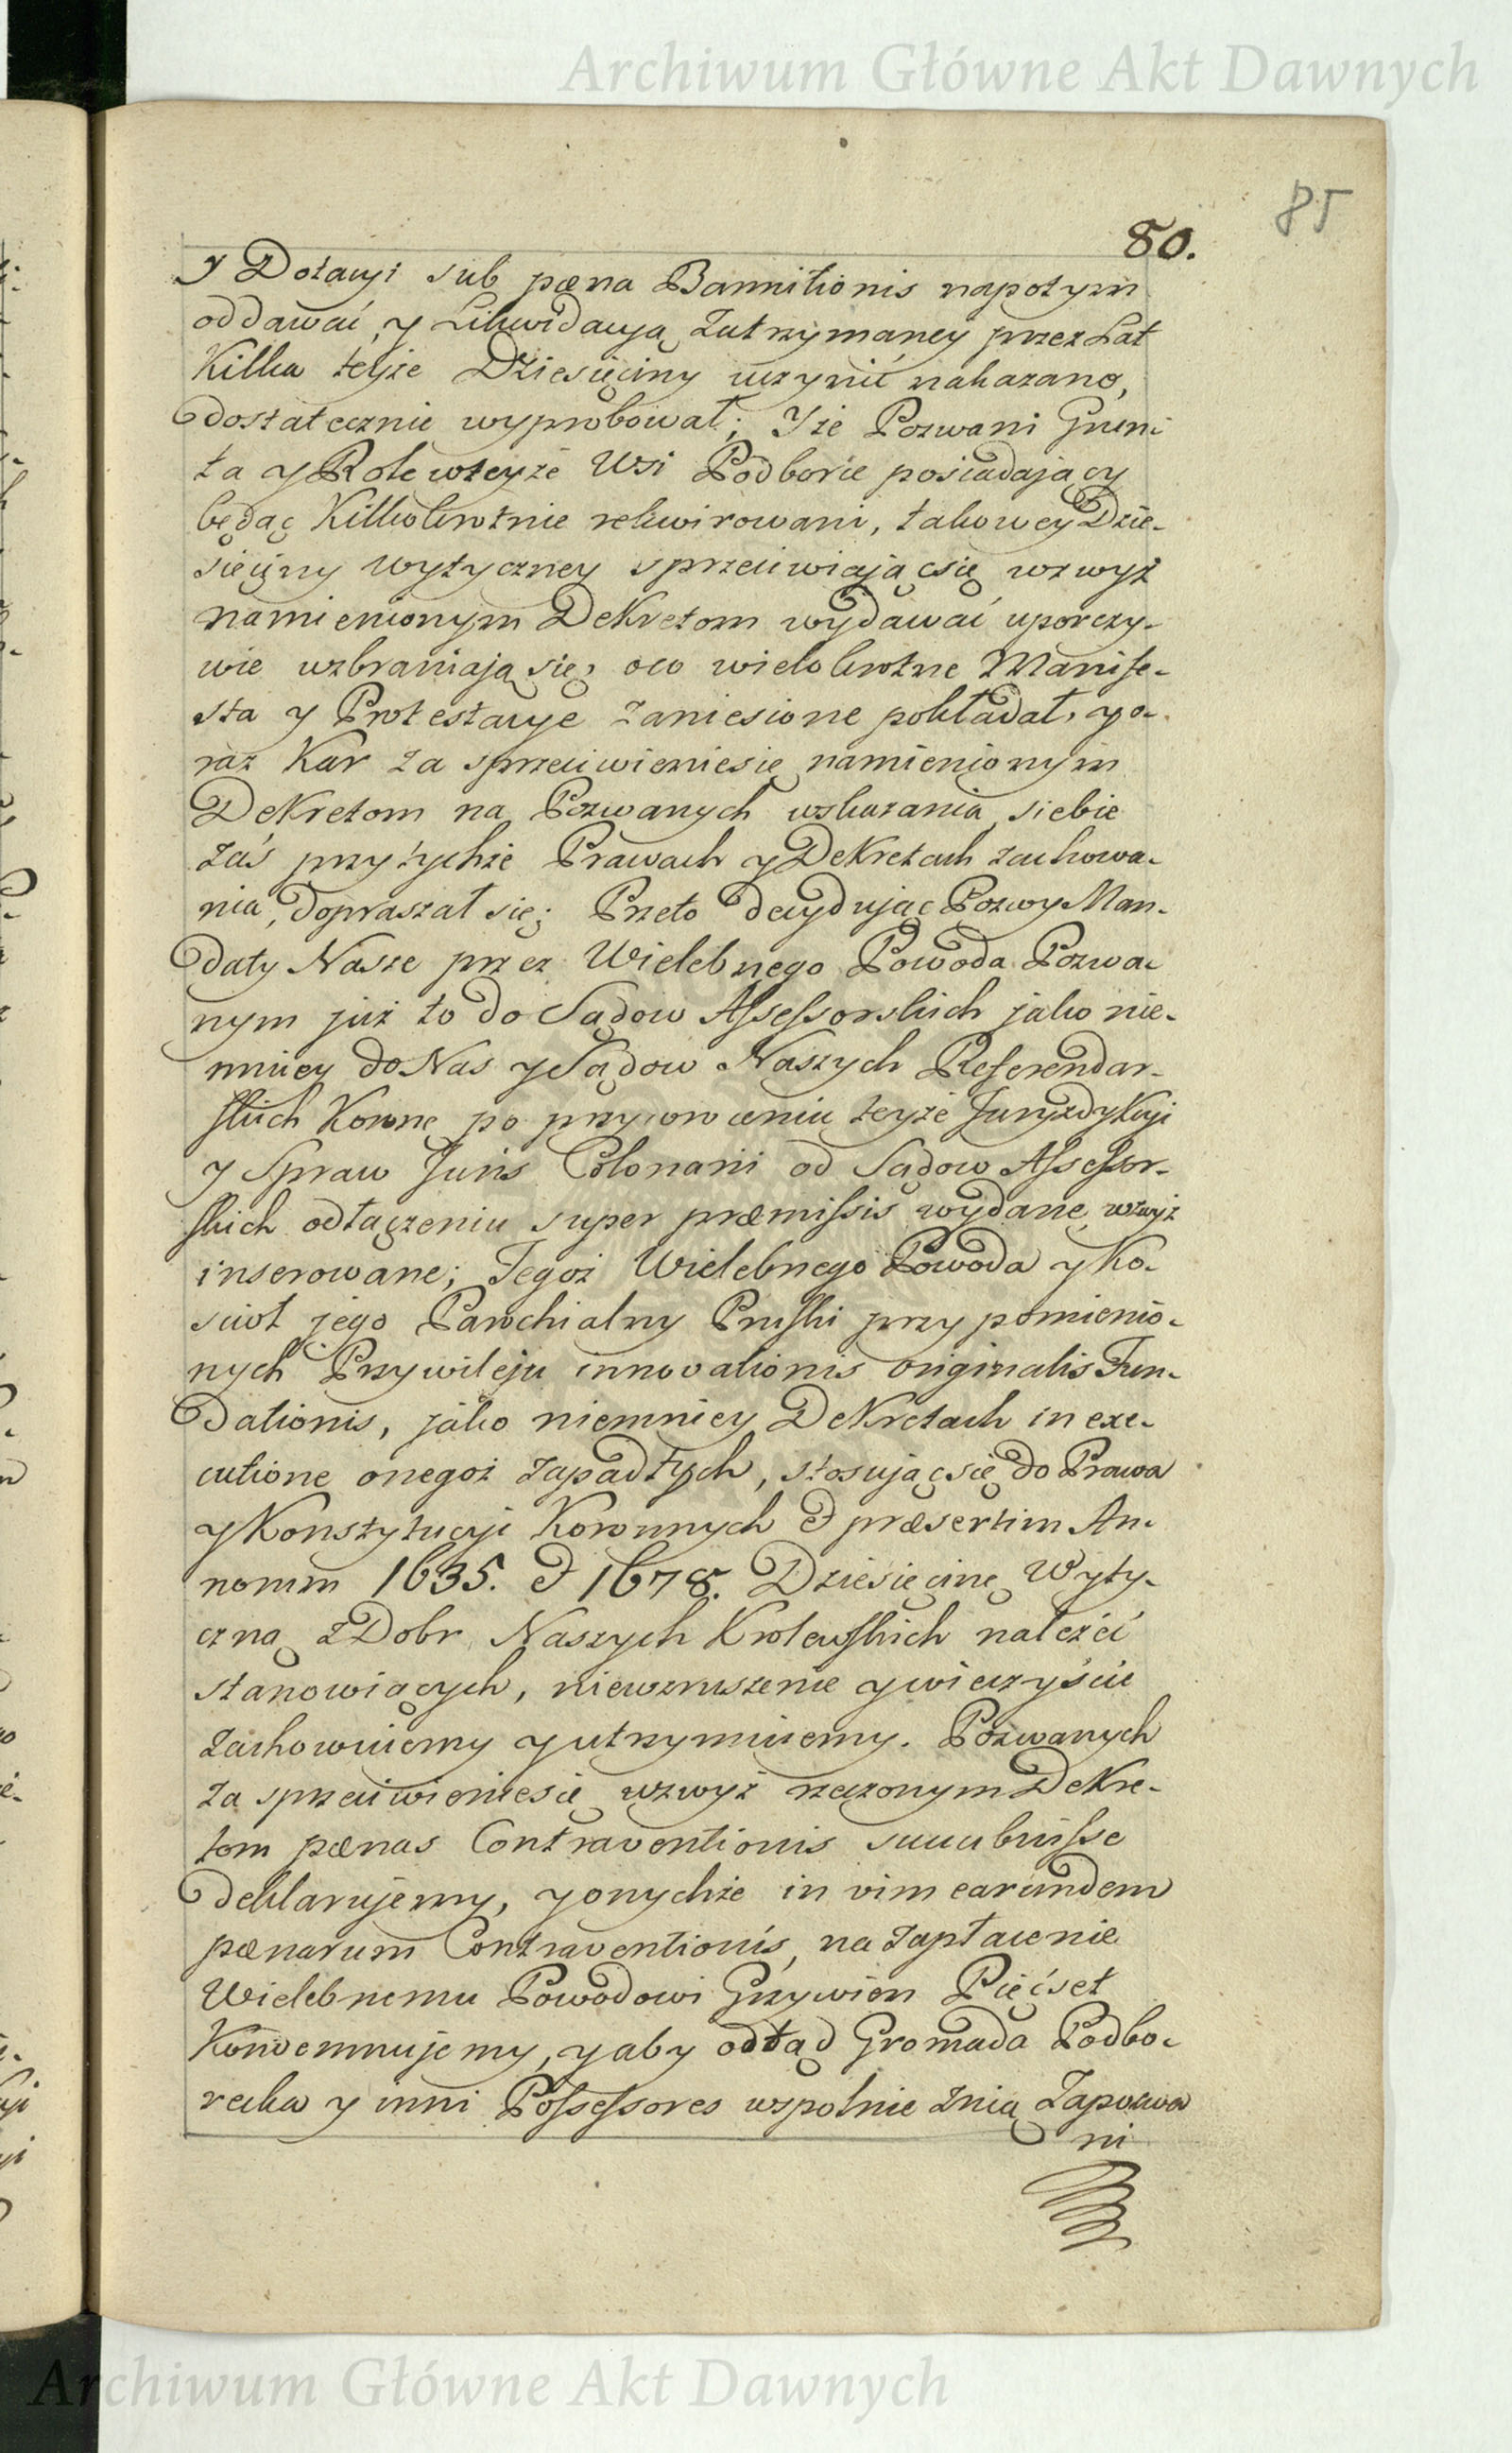 Archiwum Główne Akt Dawnych
85
80.
y Dotacyi sub pœna Bannitionis napotym
oddawać, y Likwidacyą zatrzymaney przez Lat
Kilka teyże Dziesięciny uczynić nakazano,
dostatecznie wyprobował; Iże Pozwani Grun-
ta y Role wteyże Wsi Podborze posiadaiący
będąc Kilkokrotnie rekwirowani, takowey Dzie-
sięciny wytyczney sprzeciwiaiącsię wzwyż
namienionym Dekretom wydawać uporczy-
wie wzbraniaią się, oco wielokrotne Manife-
sta y Protestacye zaniesione pokładał, y o-
raz Kar za sprzeciwieniesię namienionym
Dekretom na Pozwanych wskazania, siebie
zaś przytychże Prawach y Dekretach zachowa-
nia, dopraszał się; Przeto decydując Pozwy Man-
daty Nasze przez Wielebnego Powoda Pozwa-
nym już to do Sądow Assessorskich jako nie-
mniey do Nas y Sądow Naszych Referendar-
skich Koronę po przywroceniu teyże Juryzdykcyi
y Spraw Juris Colonarii od Sądow Assessor-
skich odłączeniu super præmissis wydane, wzwyż
inserowane; Tegoż Wielebnego Powoda y Ko-
ścioł jego Parochialny Pruski przy pomienio-
nych Przywileju innovationis originalis Fun-
dationis, jako niemniey Dekretach in exe-
cutione onegoż zapadłych, stosującsię do Prawa
y Konstytucyi Koronnych & præsertim An-
norum 1635. & 1678. Dziesięcinę Wyty-
czną z Dobr Naszych Krolewskich należeć
stanowiących, niewzruszenie y wieczyście
zachowuiemy y utrzymuiemy. Pozwanych
za sprzeciwieniesię wzwyż rzeczonym Dekre-
tom pœnas Contraventionis succubuisse
deklarujemy, y onychże in vim earundem
pœnarum Contraventionis, na zapłacenie
Wielebnemu Powodowi Grzywien Pięćset
Kondemnujemy, y aby odtąd Gromada Podbo-
recka y inni Possessores wspolnie znią Zapozwa
ni
Archiwum Główne Akt Dawnych